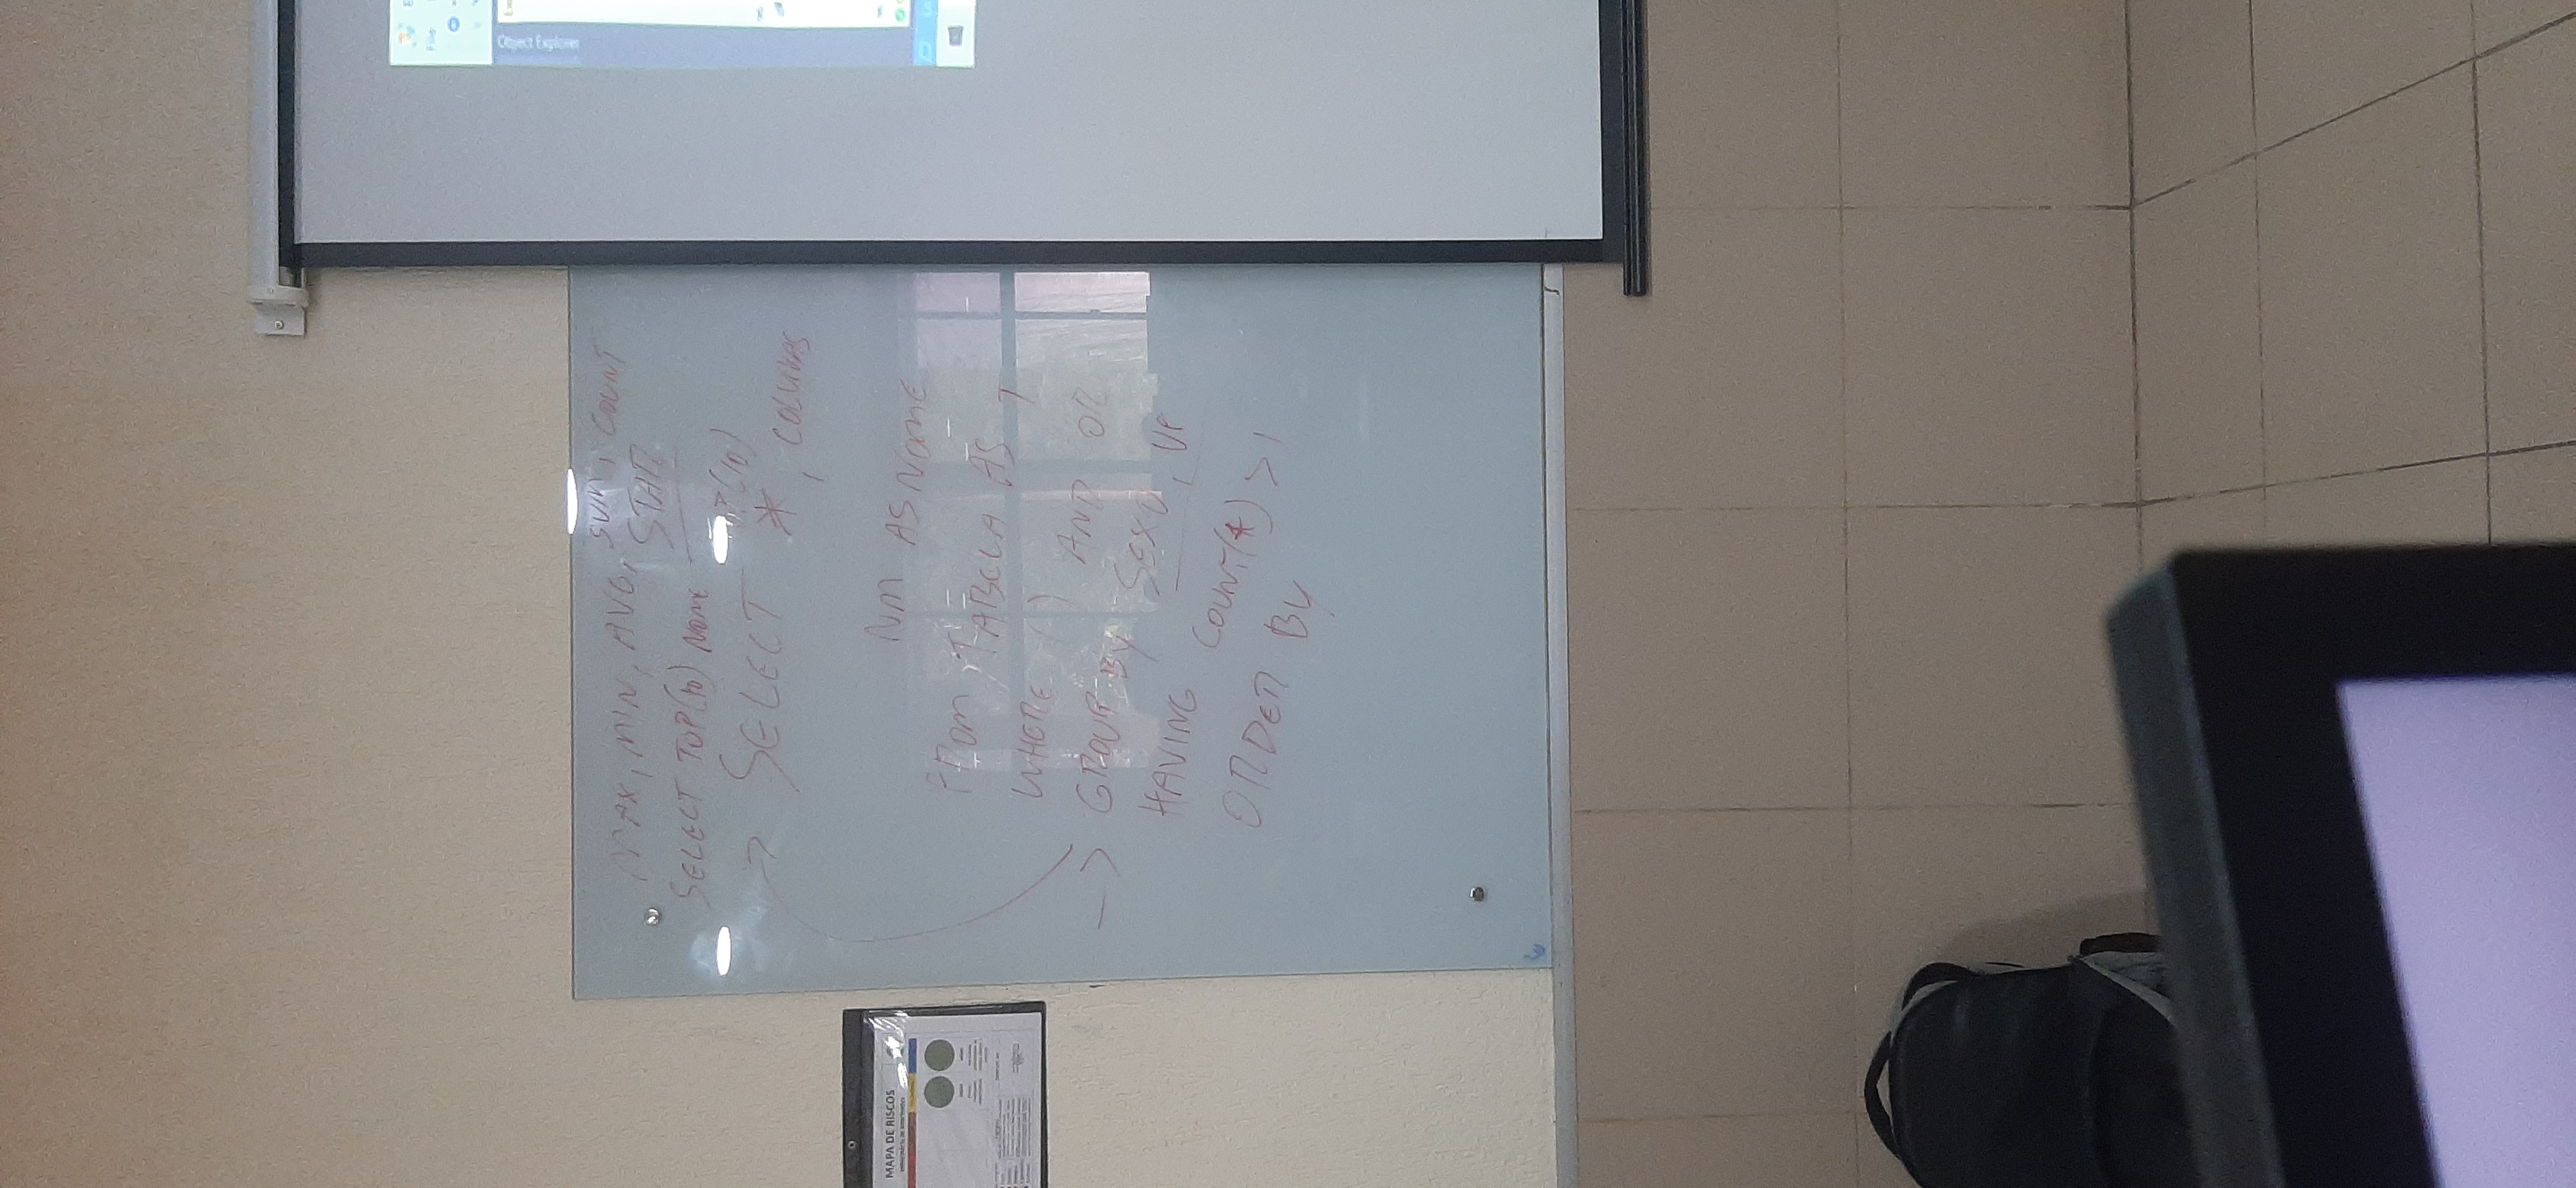 MAX, MIN, AVG, SUM, COUNT
SELECT TOP(10) NOME
SELECT TOP(10)
*, COLUNAS
NM AS NOME
FROM TABELA AS T
WHERE ( ) AND OR
GROUP BY SEXO, UF
HAVING COUNT(*) > 1
ORDER BY
MAPA DE RISCOS
File
Object Explorer